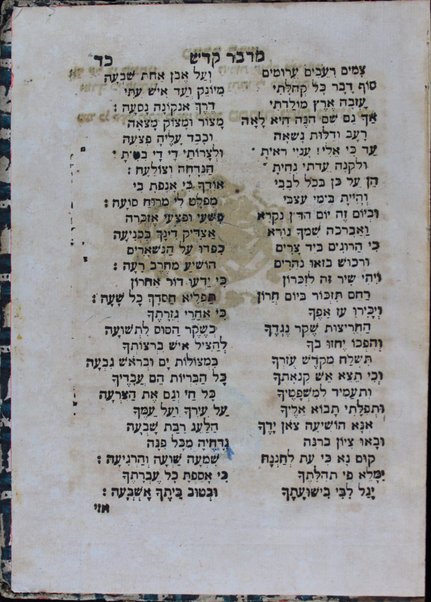 מדבר קדש כד
צמים רעבים ערומים ועל אבן אחת שבעה
סוף דבר כל קהלתי מיונק ועד איש עתי
עזבה ארץ מולדתי דרך אנקונה נסעה:
אך גם שם הנה היא לאה מצור ומצוק מצאה
רעב ודלות נשאה וכבד עליה פצעה
עד כי אלי! עניי ראית ולצרותי די די
ולקנה עדתי נחית הנדחה וצולעה:
הן על כן בכל לבבי אודך כי אנפת בי
והיית בימי עצבי מפלט לי מרוח סועה:
וביום זה יום הדין נקרא פשעי ופצעי אזכרה
ואברכה שמך נורא אצדיק דינך בכניעה
כי הרוגים ביד צרים כפדו על הנשארים
ורכוש בזאו נהרים הושיע מחרב רעה:
ויהי שיר זה לזכרון כי ידעו דור אחרון
רחם תזכור ביום חרון תפליא חסדך כל שעה:
ויכירו עז אפך כי אחרי גזרתך
החריצות שקר נגדך כשקר הסוס לתשועה
והפכו יחזו בך להציל איש ברצותך
תשלח מקדש עזרך במצולות ים ובראש גבעה
וכי תצא אש קנאתך כל הבריות הם עבריך
ותעמיד למשפטיך כל חי וגם את הצרעה
ותפלתי תבוא אליך על עירך ועל עמך
אנא הושיעה צאן ידך הלעג רבת שבעה
ובאו ציון ברנה נדחיה מכל פנה
קום נא כי עת לחננה שמעה שועה והרגיעה:
ימלא פי תהלתך כי אספת כל עברתך
יגל לבי בישועתך ובטוב ביתך אשבעה:
אזי